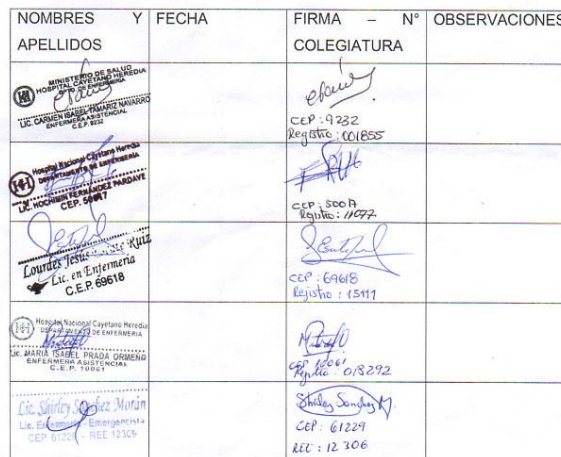 NOMBRES Y APELLIDOS
FECHA
FIRMA – N° COLEGIATURA
OBSERVACIONES
MINISTERIO DE SALUD
HOSPITAL CAYETANO HEREDIA
DPTO. DE ENFERMERIA
LIC. CARMEN ISABEL TAMARIZ NAVARRO
ENFERMERA ASISTENCIAL
C.E.P. 9232
CEP: 9232
Registro: 001855
Hospital Nacional Cayetano Heredia
DEPARTAMENTO DE ENFERMERIA
LIC. HOCHIMIN FERNÁNDEZ PARDAVE
CEP.
CEP:
Registro: 11077
Lourdes Jesus Ruiz
Lic. en Enfermeria
C.E.P. 69618
CEP: 69618
Registro: 15111
Hospital Nacional Cayetano Heredia
DEPARTAMENTO DE ENFERMERIA
Lic. MARIA ISABEL PRADA ORMEÑO
ENFERMERA ASISTENCIAL
C.E.P. 10061
CEP 10061
Registro: 018292
Lic. Shirley Sánchez Morán
Lic. Enfermería - Emergencista
CEP 61229 - REE 12306
Shirley Sanchez M.
CEP: 61229
REE: 12 306